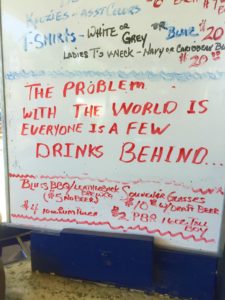 KOOZIES - ASST COLORS
T-SHIRTS - WHITE OR GREY OR BLUE $20
LADIES T'S V-NECK - NAVY OR CARIBBEAN
$20
THE PROBLEM
WITH THE WORLD IS
EVERYONE IS A FEW
DRINKS BEHIND...
BLUES BBQ
($5 NO BEER)
SOUVENIR GLASSES
$10 w/DRAFT BEER
$2 PBR 16oz TALL
BOY